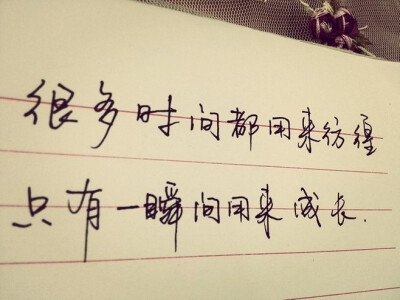 很多时间都用来彷徨
只有一瞬间用来成长.